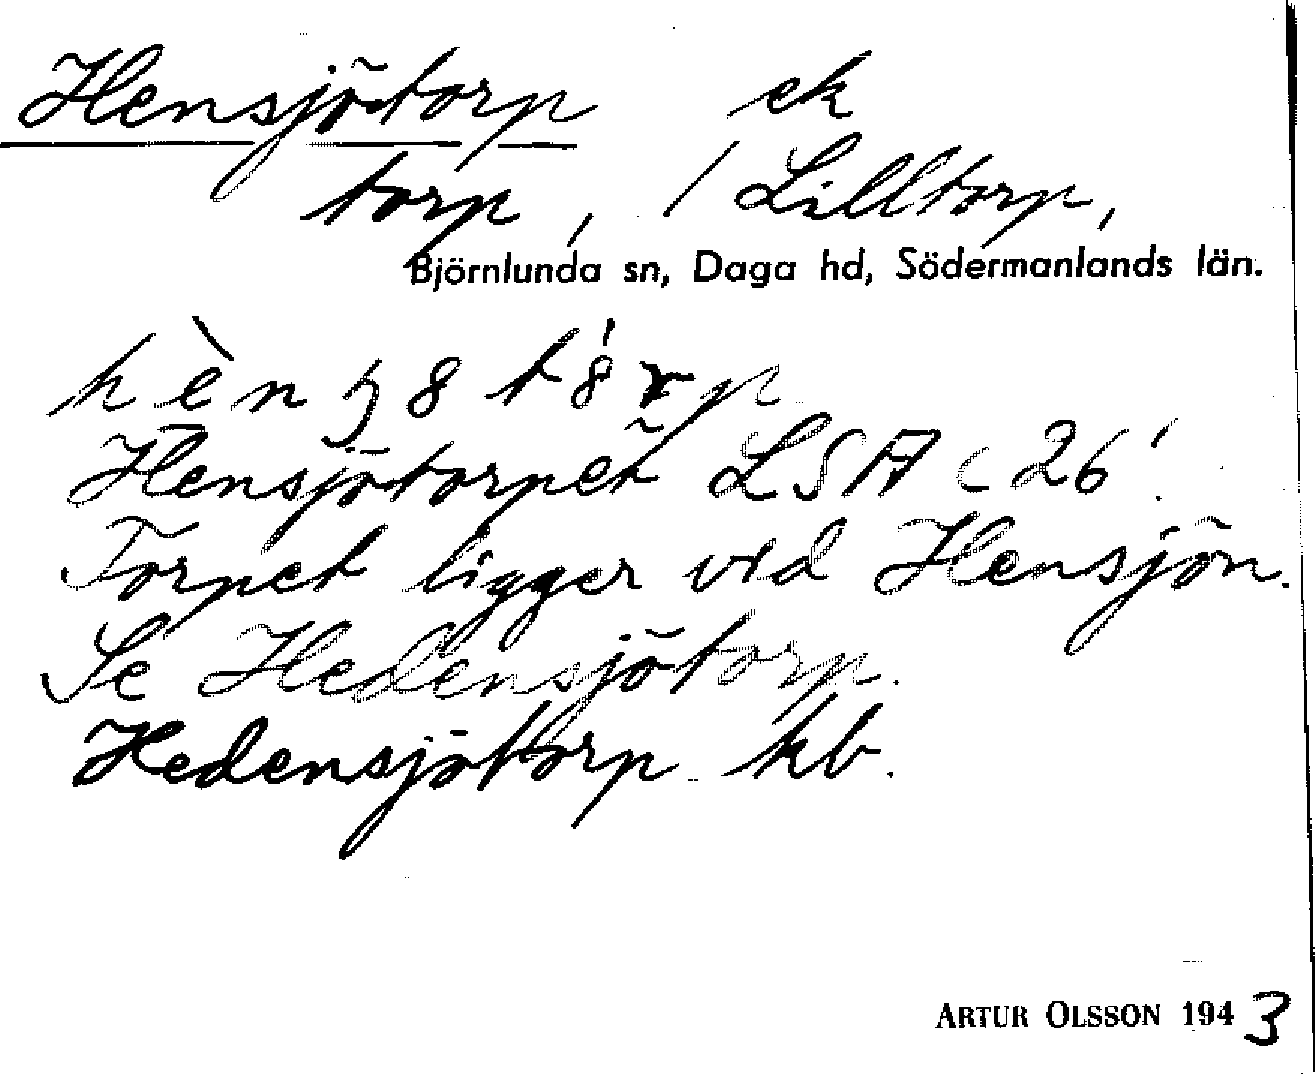 Hensjötorp ek
torp, / Lilltorp,
Björnlunda sn, Daga hd, Södermanlands län.
Hensjötorpet LSA c 26'.
Torpet ligger vid Hensjön.
Se Hedensjötorp.
Hedensjötorp kb.
ARTUR OLSSON 1943